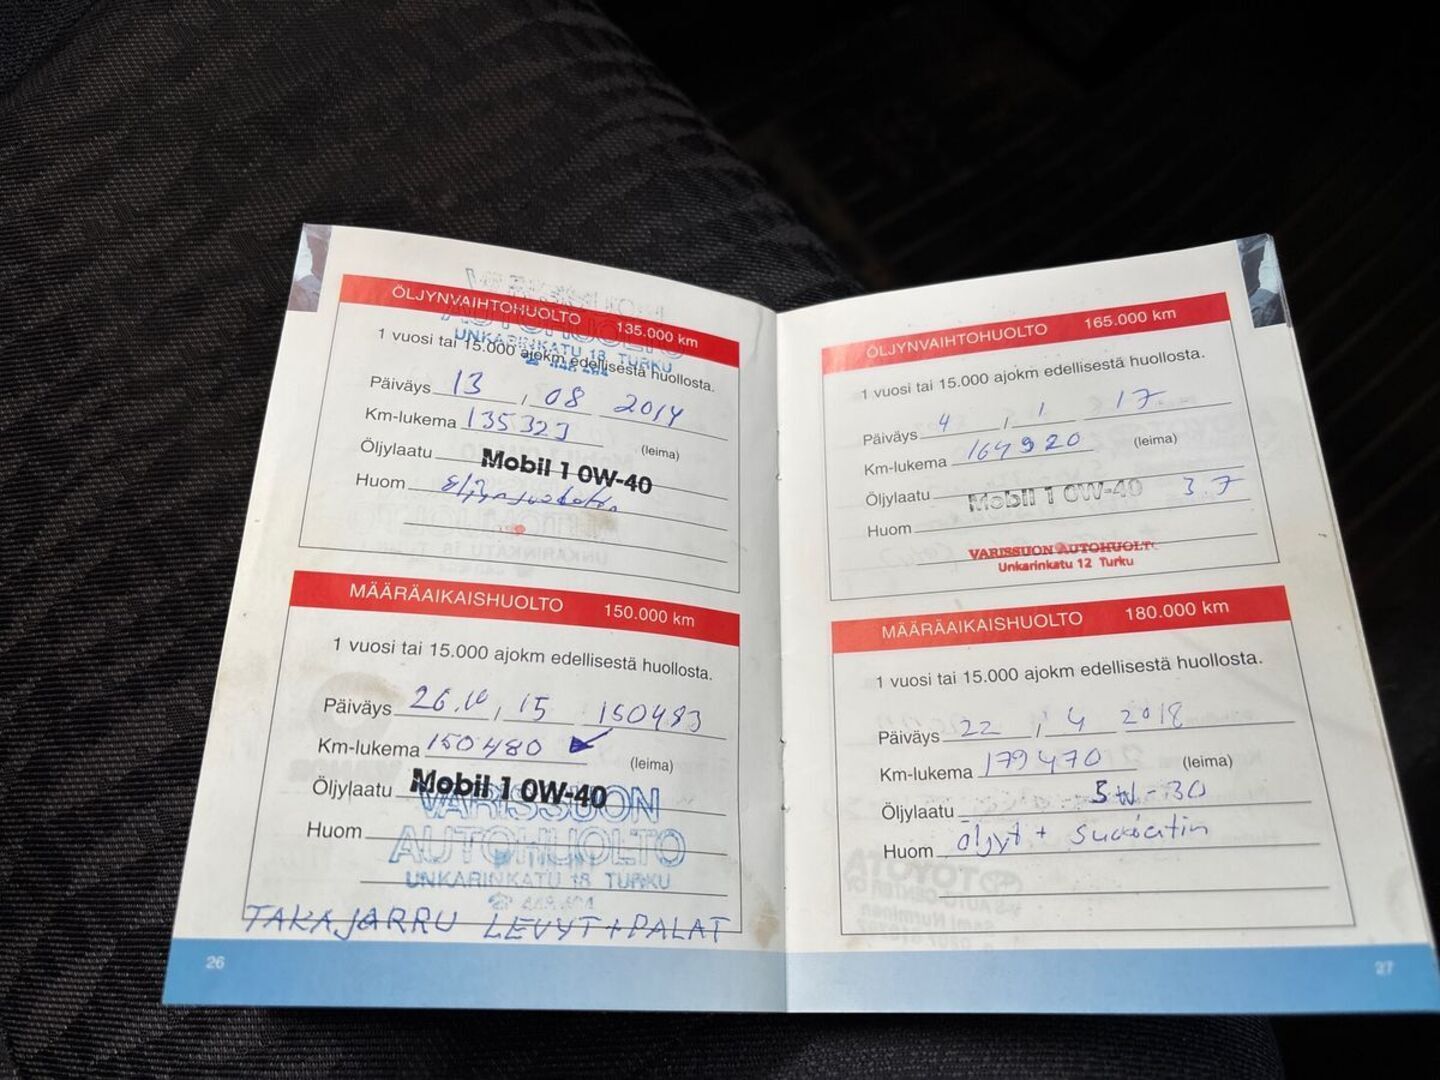 ÖLJYNVAIHTOHUOLTO 135.000 km
AUTOHUOLTO
UNKARINKATU 18 TURKU
1 vuosi tai 15.000 ajokm edellisestä huollosta.
Päiväys 13 / 08 2014
Km-lukema 135323
(leima)
Öljylaatu Mobil 1 0W-40
Huom
MÄÄRÄAIKAISHUOLTO 150.000 km
1 vuosi tai 15.000 ajokm edellisestä huollosta.
Päiväys 26.10 / 15 150483
Km-lukema 150480
(leima)
Öljylaatu Mobil 1 0W-40
VARISSUON
Huom
AUTOHUOLTO
UNKARINKATU 18 TURKU
TAKAJARRU LEVYT+PALAT
26
ÖLJYNVAIHTOHUOLTO 165.000 km
1 vuosi tai 15.000 ajokm edellisestä huollosta.
Päiväys 4 / 1 17
Km-lukema 164920 (leima)
Öljylaatu Mobil 1 0W-40 3.7
Huom
VARISSUON AUTOHUOLTO
Unkarinkatu 12 Turku
MÄÄRÄAIKAISHUOLTO 180.000 km
1 vuosi tai 15.000 ajokm edellisestä huollosta.
Päiväys 22 / 4 2018
Km-lukema 179470 (leima)
Öljylaatu 5W-30
Huom öljyt + suodatin
27